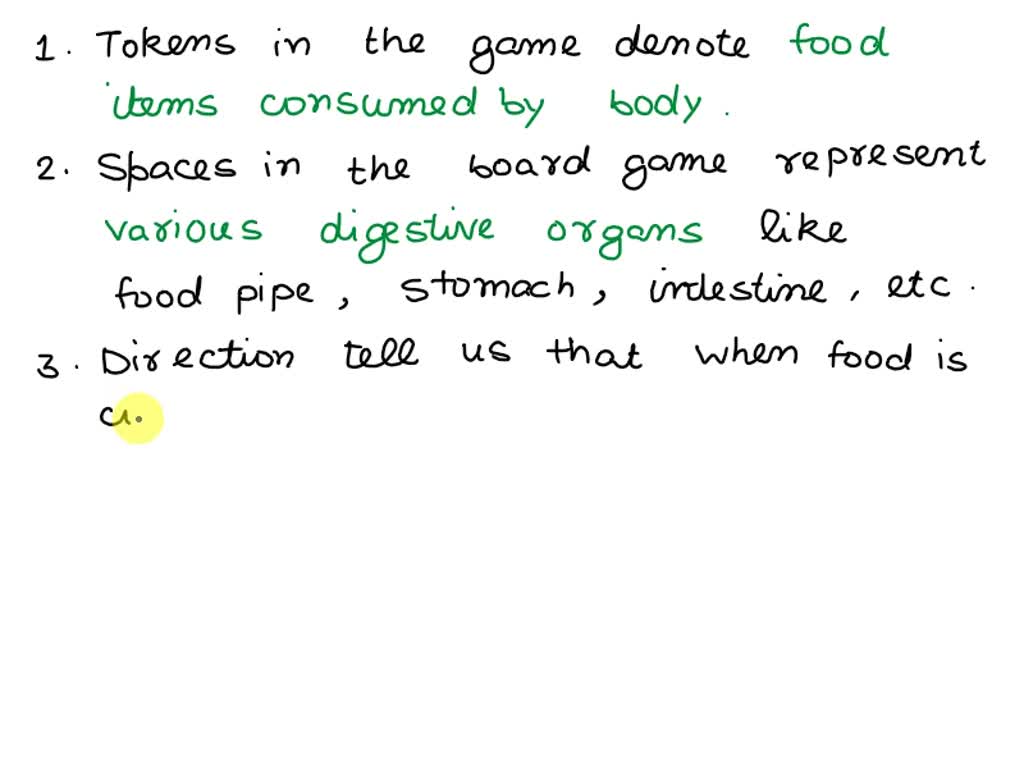 1. Tokens in the game denote food
items consumed by body.
2. Spaces in the board game represent
various digestive organs like
food pipe, stomach, intestine, etc.
3. Direction tell us that when food is